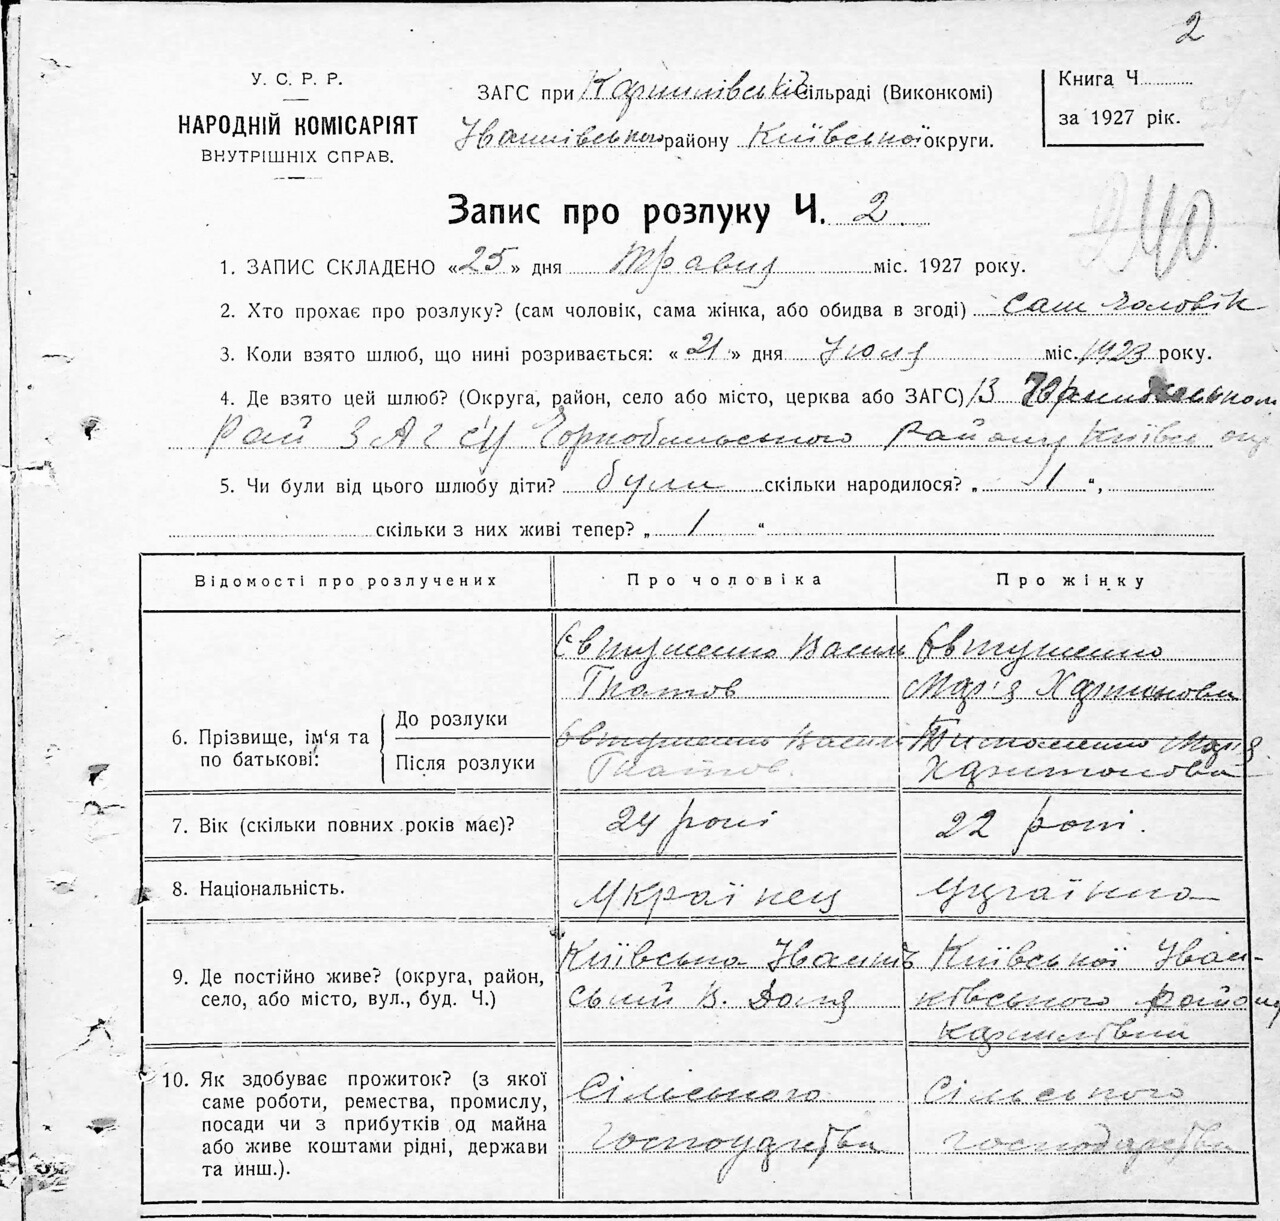 2
У. С. Р. Р.
НАРОДНІЙ КОМІСАРІЯТ
ВНУТРІШНІХ СПРАВ.
ЗАГС при Кармилівській сільраді (Виконкомі)
Іванківського району Київської округи.
Книга Ч
за 1927 рік.
240
Запис про розлуку Ч. 2
1. ЗАПИС СКЛАДЕНО «25» дня Травня міс. 1927 року.
2. Хто прохає про розлуку? (сам чоловік, сама жінка, або обидва в згоді) сам чоловік
3. Коли взято шлюб, що нині розривається: «21» дня Июля міс. 1923 року.
4. Де взято цей шлюб? (Округа, район, село або місто, церква або ЗАГС) В
Рай ЗАГСУ Чорнобильського Району Київс окр
5. Чи були від цього шлюбу діти? були скільки народилося? „ 1 “,
скільки з них живі тепер? „ 1 “
Відомості про розлучених Про чоловіка Про жінку
6. Прізвище, ім‘я та по батькові:
До розлуки
Євтушенко Васил
Гнатов
Євтушенко
Мар'я Харитонова
Після розлуки
Євтушенко Васил
Гнатов.
Тимошенко Мар'я
Харитонова
7. Вік (скільки повних років має)? 24 рокі 22 рокі.
8. Національність. Українец Українка
9. Де постійно живе? (округа, район,
село, або місто, вул., буд. Ч.)
Київська Іванків
ський В. Доля
Київської Іван-
ківського району
Кармилівки
10. Як здобуває прожиток? (з якої
саме роботи, ремества, промислу,
посади чи з прибутків од майна
або живе коштами рідні, держави
та инш.).
Сілського
господарства
Сільського
господарства